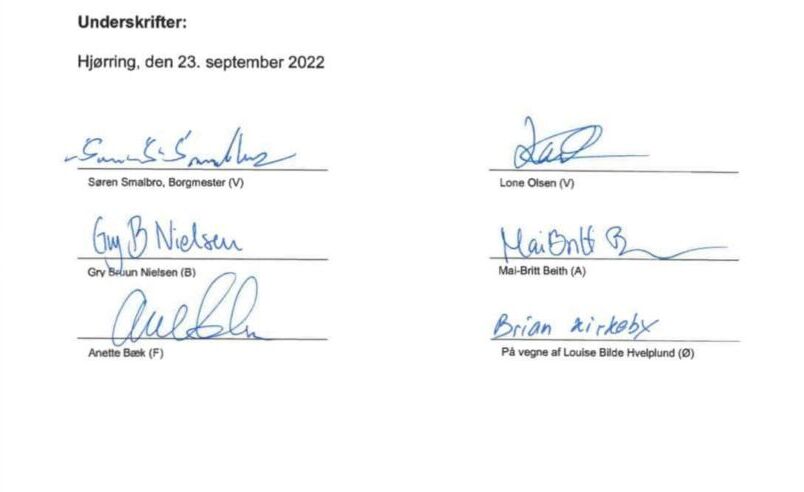 Underskrifter:
Hjørring, den 23. september 2022
Søren Smalbro, Borgmester (V)
Lone Olsen (V)
Gry B Nielsen
MaiBritt B
Gry Bruun Nielsen (B)
Mai-Britt Beith (A)
Brian Kirkeby
Anette Bæk (F)
På vegne af Louise Bilde Hvelplund (Ø)